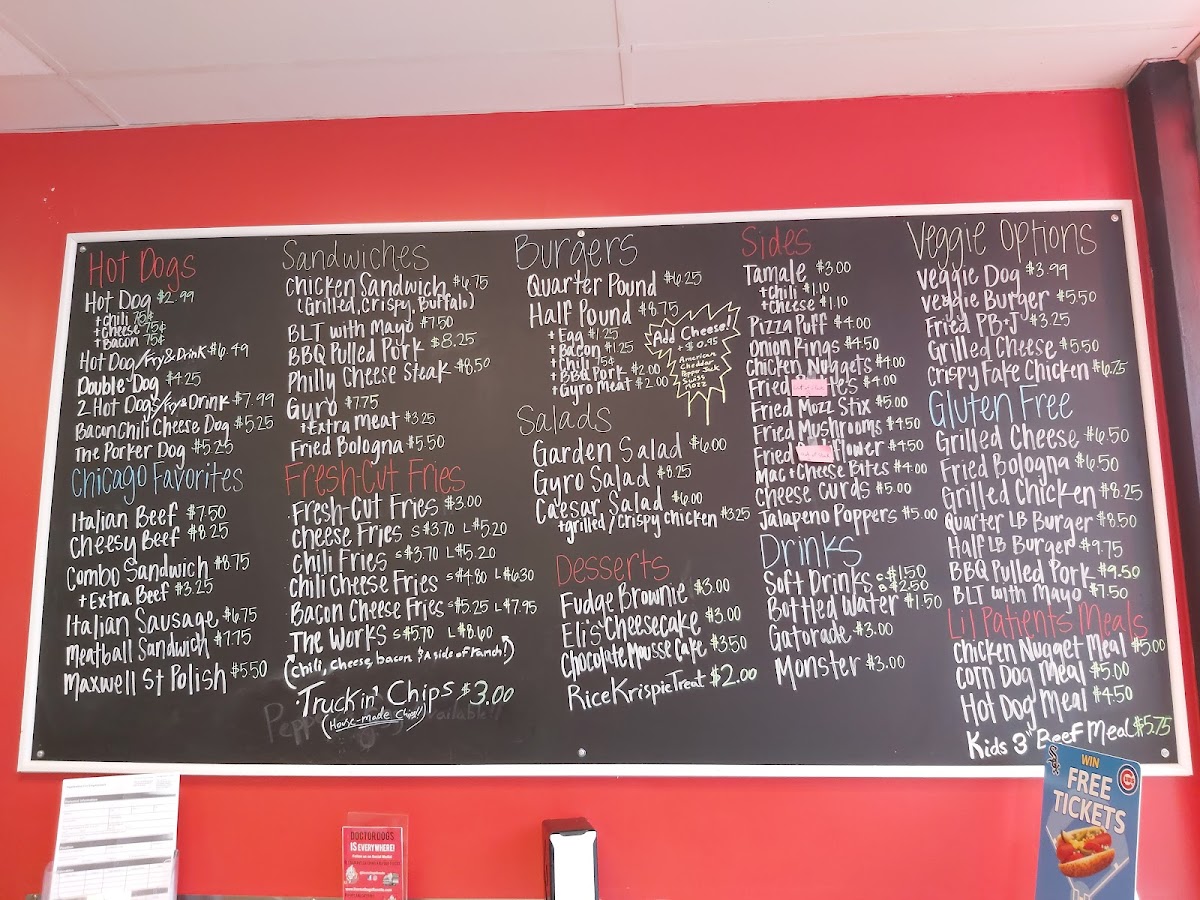 Hot Dogs
Hot Dog $2.99
+chili 75¢
+cheese 75¢
+Bacon 75¢
Hot Dog/Fry & Drink $6.49
Double Dog $4.25
2 Hot Dogs/Fry & Drink $7.99
Bacon Chili Cheese Dog $5.25
The Porker Dog $5.25
Chicago Favorites
Italian Beef $7.50
Cheesy Beef $8.25
Combo Sandwich $8.75
+ Extra Beef $3.25
Italian Sausage $6.75
Meatball Sandwich $7.75
Maxwell St Polish $5.50
Sandwiches
Chicken Sandwich $6.75
(Grilled, Crispy, Buffalo)
BLT with Mayo $7.50
BBQ Pulled Pork $8.25
Philly Cheese Steak $8.50
Gyro $7.75
+Extra Meat $3.25
Fried Bologna $5.50
Fresh-Cut Fries
Fresh-Cut Fries $3.00
Cheese Fries S $3.70 L $5.20
Chili Fries S $3.70 L $5.20
Chili Cheese Fries S $4.80 L $6.30
Bacon Cheese Fries S $5.25 L $7.95
The Works S $5.70 L $8.60
(Chili, cheese, bacon & A side of ranch!)
Truckin' Chips $3.00
(House-made Chips!)
Burgers
Quarter Pound $6.25
Half Pound $8.75
+ Egg $1.25
+ Bacon $1.25
+ Chili 75¢
+ BBQ Pork $2.00
+ Gyro meat $2.00
Add Cheese!
+ $0.95
American
Cheddar
Pepper Jack
Swiss
Mozz
Salads
Garden Salad $6.00
Gyro Salad $8.25
Caesar Salad $6.00
+grilled/crispy chicken $3.25
Desserts
Fudge Brownie $3.00
Eli's Cheesecake $3.00
Chocolate Mousse Cake $3.50
Rice Krispie Treat $2.00
Sides
Tamale $3.00
+ Chili $1.10
+ Cheese $1.10
Pizza Puff $4.00
Onion Rings $4.50
Chicken Nuggets $4.00
Fried $4.00
Fried Mozz Stix $5.00
Fried Mushrooms $4.50
Fried flower $4.50
Mac + Cheese Bites $4.00
Cheese Curds $5.00
Jalapeno Poppers $5.00
Drinks
Soft Drinks S $1.50
L $2.50
Bottled Water $1.50
Gatorade $3.00
Monster $3.00
Veggie Options
Veggie Dog $3.99
Veggie Burger $5.50
Fried PB+J $3.25
Grilled Cheese $5.50
Crispy Fake Chicken $6.75
Gluten Free
Grilled Cheese $6.50
Fried Bologna $6.50
Grilled Chicken $8.25
Quarter LB Burger $8.50
Half LB Burger $9.75
BBQ Pulled Pork $9.50
BLT with Mayo $7.50
Lil Patients Meals
Chicken Nugget Meal $5.00
Corn Dog Meal $5.00
Hot Dog Meal $4.50
Kids 3" Beef Meal $5.75
DOCTOR DOGS
IS EVERYWHERE!
Follow us on Social Media!
Sox
WIN
FREE
TICKETS